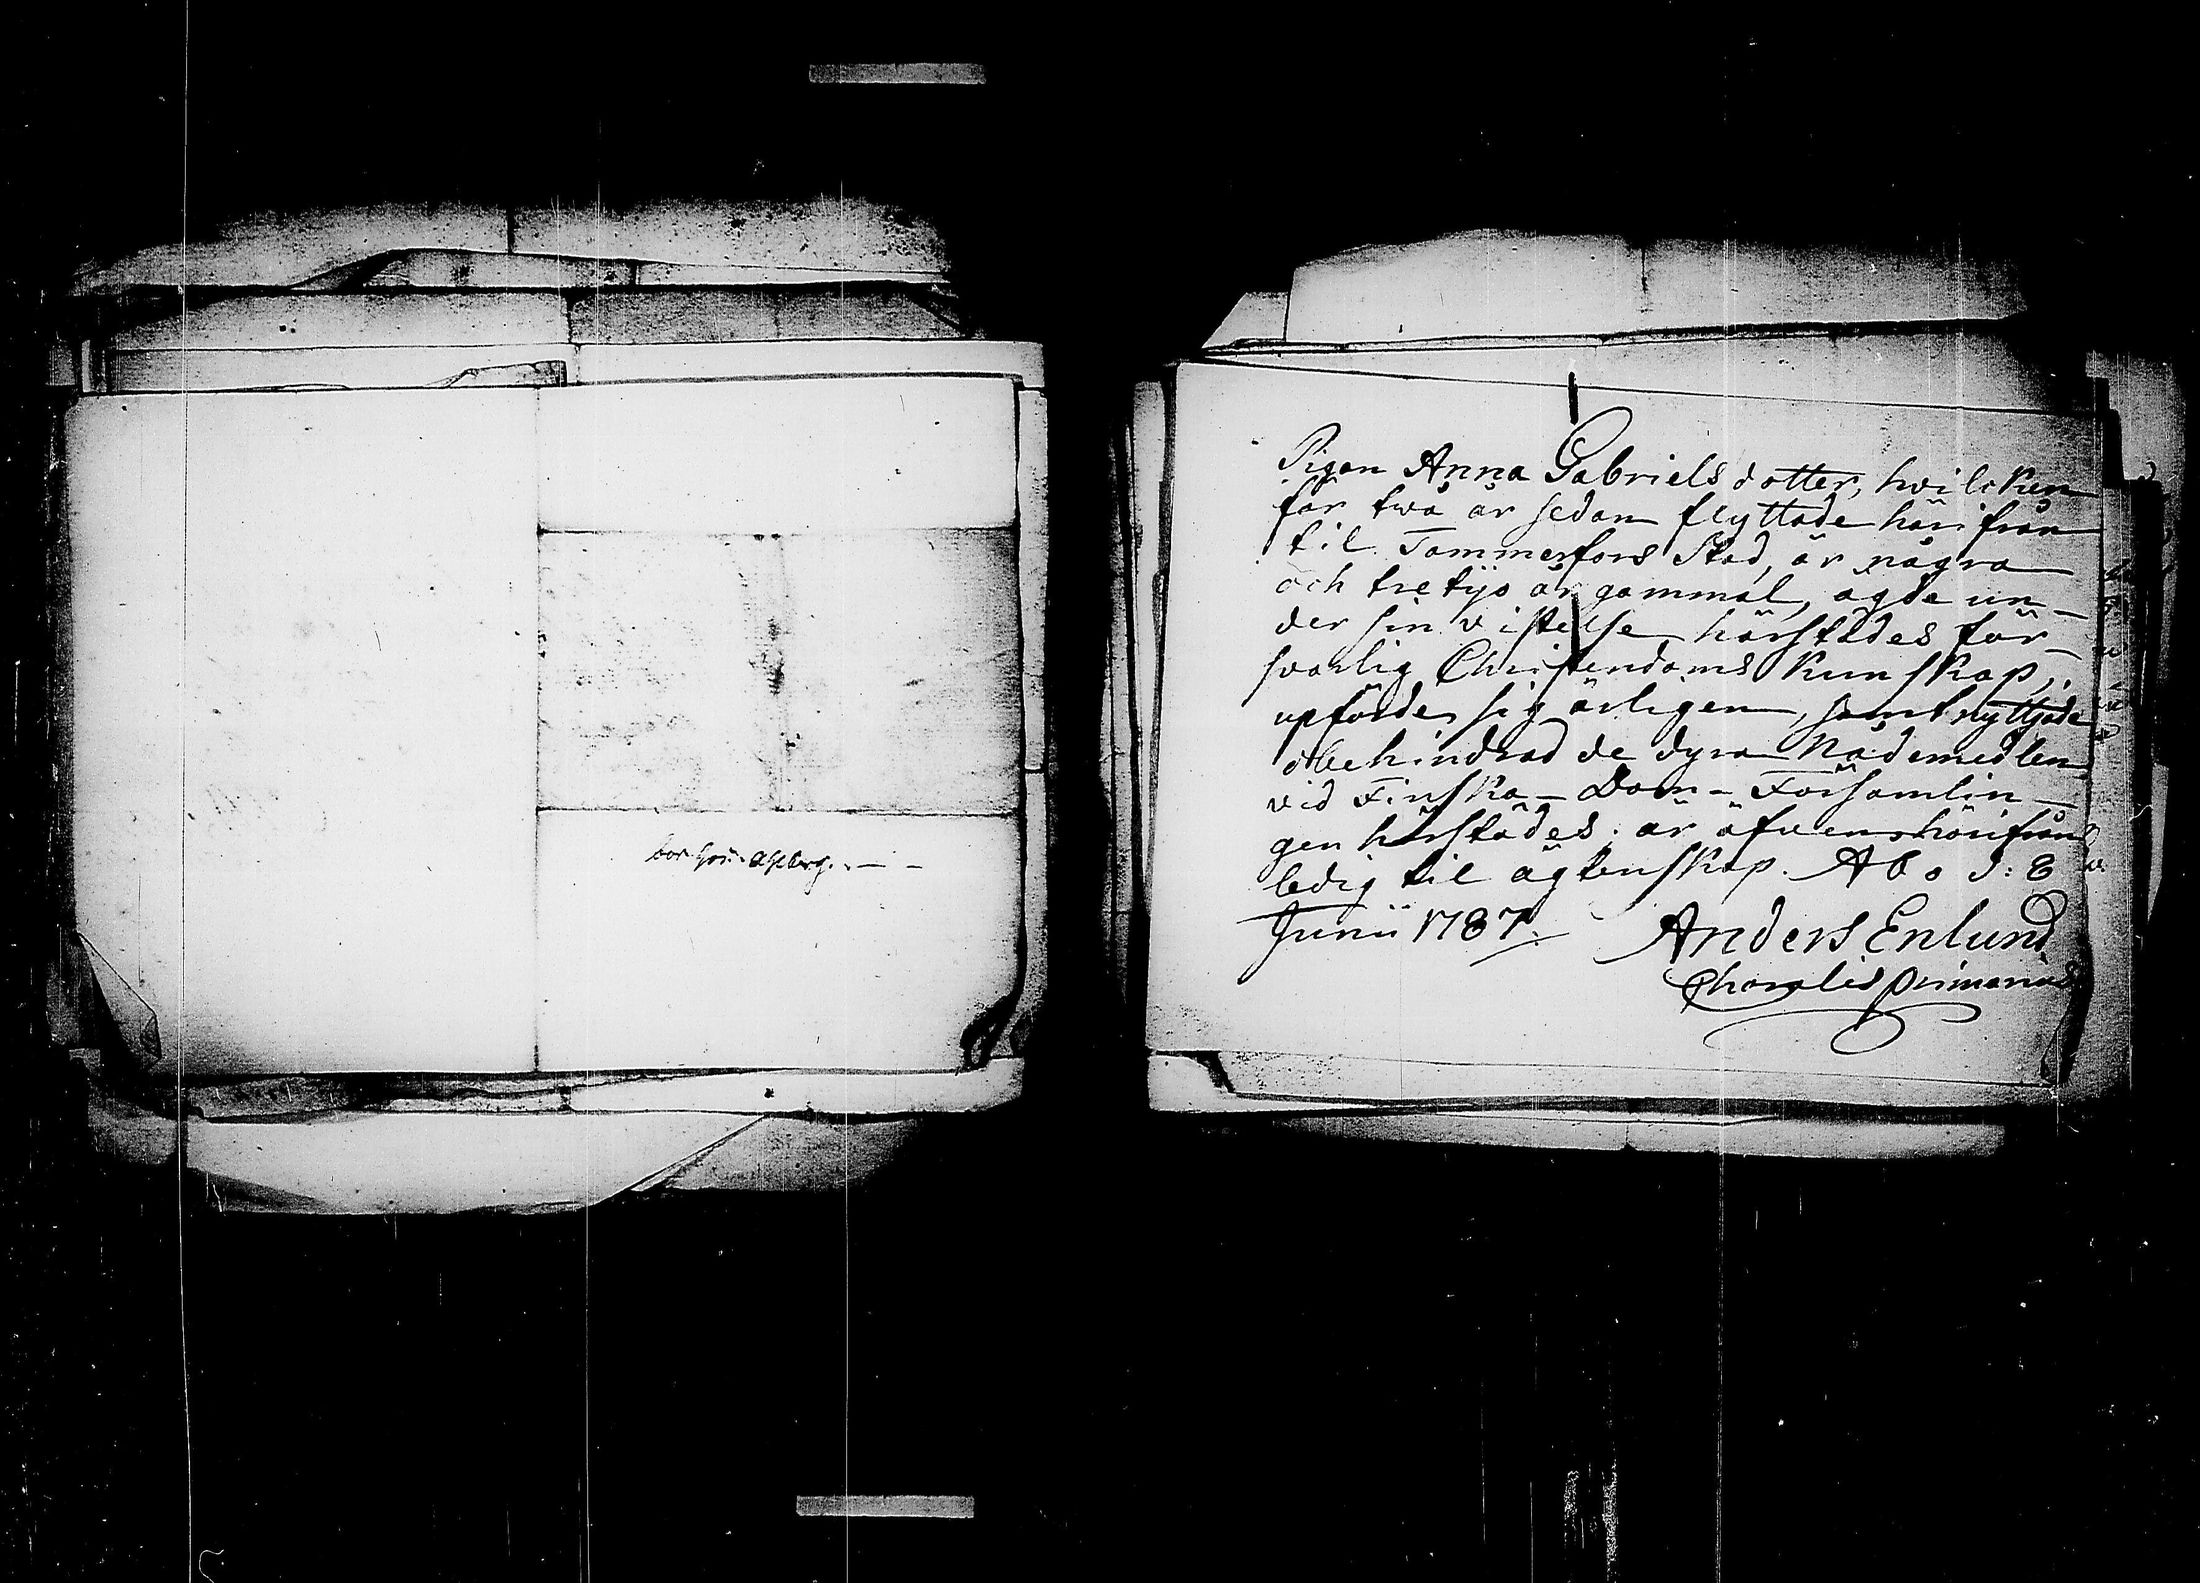 bor hos Ahlberg. — —
Pigan Anna Gabrielsdotter, hvilcken
för två år sedan flyttade härifrån
til Tammerfors Stad, är några
och tretijo år gammal, ägde un-
der sin vistelse härstädes för-
svarlig Christendoms kunskap,
upförde sig ärligen, samt nyttjade
obehindrad de dyra Nådemedlen
vid Finska-Dom-Församlin-
gen härstädes; är äfven härifrån
ledig til ägtenskap. Åbo d: 8
Junii 1787.
Anders Enlund
Choralis primarius